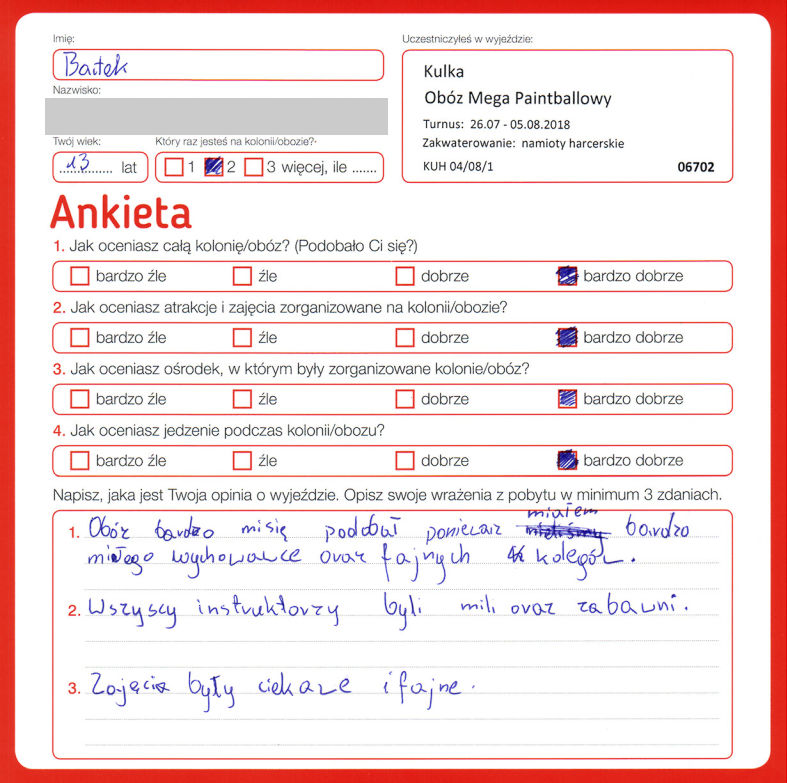 Imię:
Bartek
Nazwisko:
Twój wiek:
13 lat
Który raz jesteś na kolonii/obozie?
1 2 3 więcej, ile .......
Uczestniczyłeś w wyjeździe:
Kulka
Obóz Mega Paintballowy
Turnus: 26.07 - 05.08.2018
Zakwaterowanie: namioty harcerskie
KUH 04/08/1 06702
Ankieta
1. Jak oceniasz całą kolonię/obóz? (Podobało Ci się?)
bardzo źle źle dobrze bardzo dobrze
2. Jak oceniasz atrakcje i zajęcia zorganizowane na kolonii/obozie?
bardzo źle źle dobrze bardzo dobrze
3. Jak oceniasz ośrodek, w którym były zorganizowane kolonie/obóz?
bardzo źle źle dobrze bardzo dobrze
4. Jak oceniasz jedzenie podczas kolonii/obozu?
bardzo źle źle dobrze bardzo dobrze
Napisz, jaka jest Twoja opinia o wyjeździe. Opisz swoje wrażenia z pobytu w minimum 3 zdaniach.
1. Obóz bardzo misię podobał poniewarz miałem bardzo
miłego wychowawce oraz fajnych kolegów.
2. Wszyscy instruktorzy byli mili oraz zabawni.
3. Zajęcia były ciekawe i fajne.